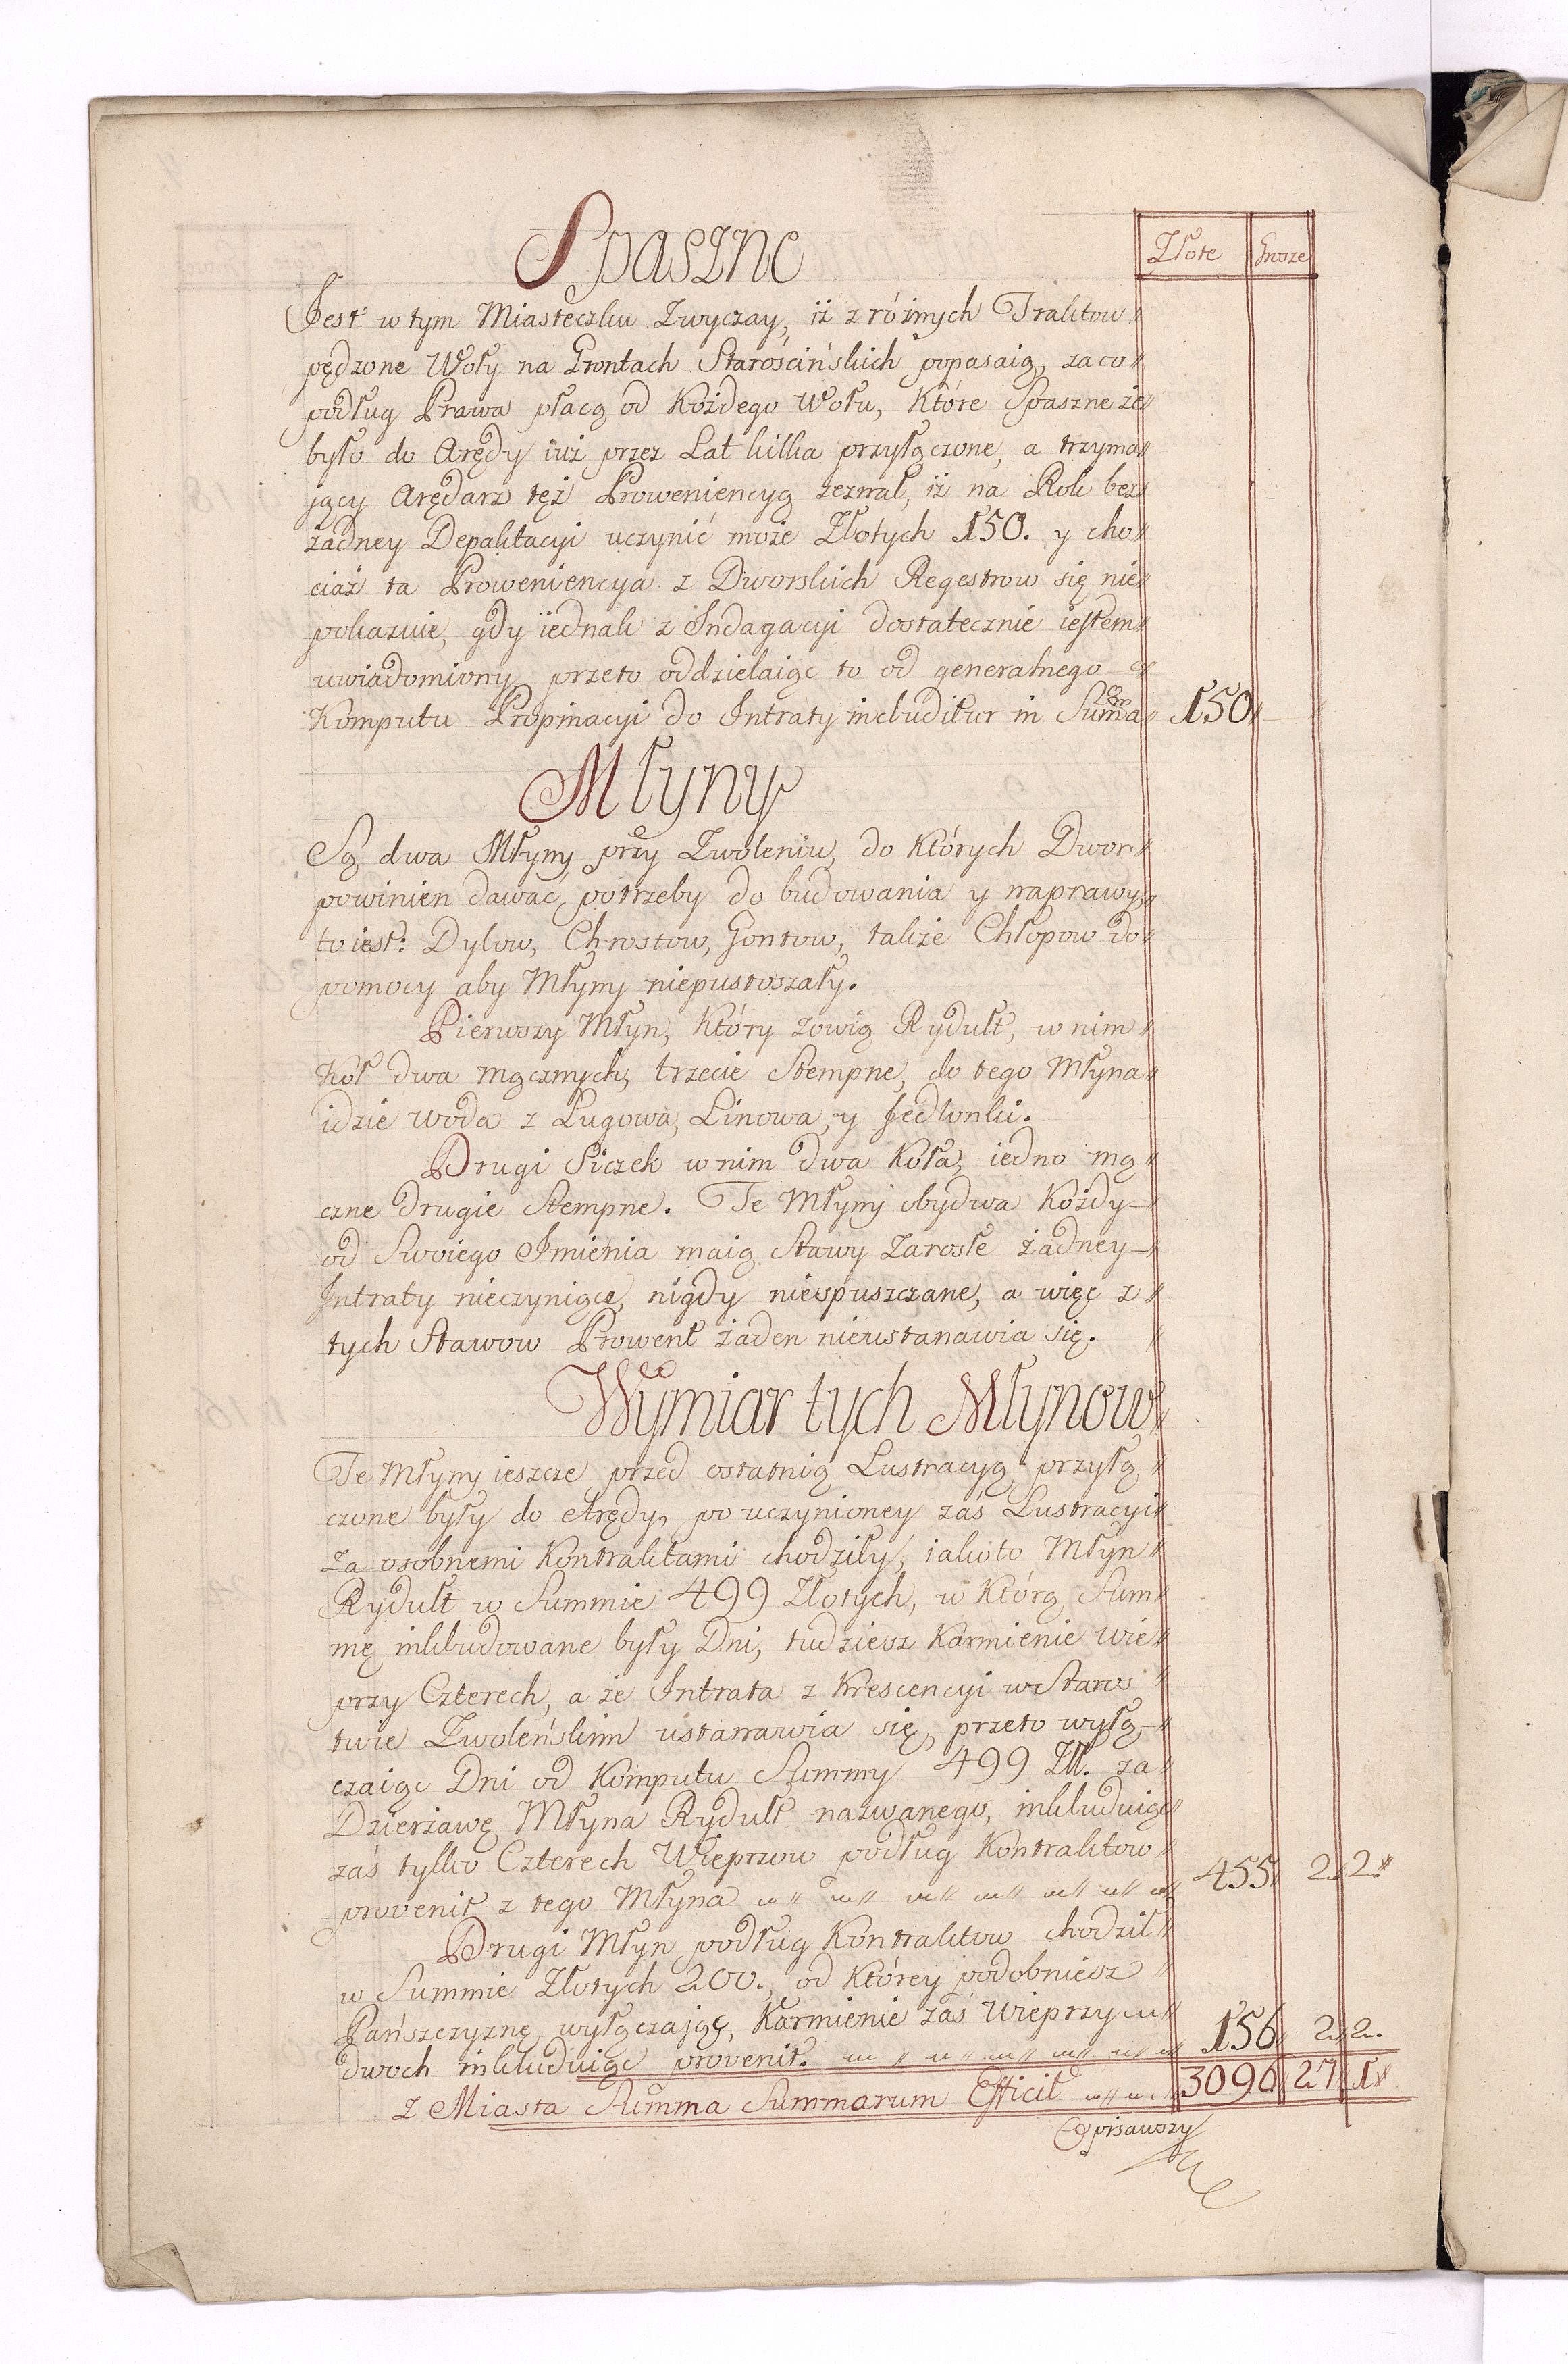 Spaszne
Złote Grosze
Jest w tym Miasteczku Zwyczay, iż z różnych Traktow
pędzone Woły na Grontach Starościńskich popasaią, za co
podług Prawa płacą od Kożdego Wołu, Które Spaszne że
było do Arędy iuż przez Lat kilka przyłączone, a trzyma
jący Arędarz tęż Proweniencyą zeznał, iż na Rok bez
żadney Depaktacyi uczynić może Złotych 150. y cho
ciaż ta Proweniencya z Dworskich Regestrow się nie
pokazuie, gdy iednak z Indagacyi dostatecznie iestem
uwiadomiony, przeto oddzielaiąc to od generalnego
Komputu Propinacyi do Intraty includitur in Suma 150
Młyny
Są dwa Młyny przy Zwoleniu, do Których Dwor
powinien dawac potrzeby do budowania y naprawy,
to iest: Dylow, Chrostow, Gontow, także Chłopow do
pomocy aby Młyny niepustoszały.
Pierwszy Młyn, Który zowią Rydult, w nim
Kół dwa mącznych, trzecie Stempne, do tego Młyna
idzie woda z Ługowa, Linowa, y Jedlonki.
Drugi Siczek w nim dwa Koła, iedno mą
czne drugie Stempne. Te Młyny obydwa Kożdy
od Swoiego Imienia maią Stawy Zarosłe żadney
Intraty nieczyniące, nigdy niespuszczane, a więc z
tych Stawow Prowent żaden nieustanawia się.
Wymiar tych Młynow
Te Młyny ieszcze przed ostatnią Lustracyą przyłą
czone były do Arędy, po uczynioney zaś Lustracyi
za osobnemi Kontraktami chodziły, iako to Młyn
Rydult w Summie 499 Złotych, w Którą Sum
mę inkludowane były Dni, tudziesz Karmienie wie
przy Czterech, a że Intrata z Krescencyi w Staros
twie Zwoleńskim ustanawia się, przeto wyłą
czaiąc Dni od Komputu Summy 499 Zł. za
Dzierżawę Młyna Rydult nazwanego, inkluduiąc
zaś tylko Czterech Wieprzow podług Kontraktow
provenit z tego Młyna 455
Drugi Młyn podług Kontraktow chodził
w Summie Złotych 200. od Którey podobniesz
Pańszczyznę wyłączając, Karmienie zaś Wieprzy
dwoch inkluduiąc provenit. 156
z Miasta Summa Summarum Efficit 3096 27 1
Opisawszy